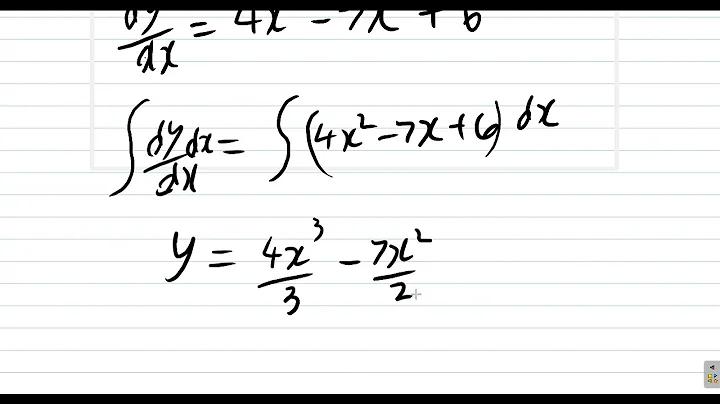 dy/dx = 4x - 7x + 6
∫ dy/dx dx = ∫ (4x² - 7x + 6) dx
y = 4x³/3 - 7x²/2